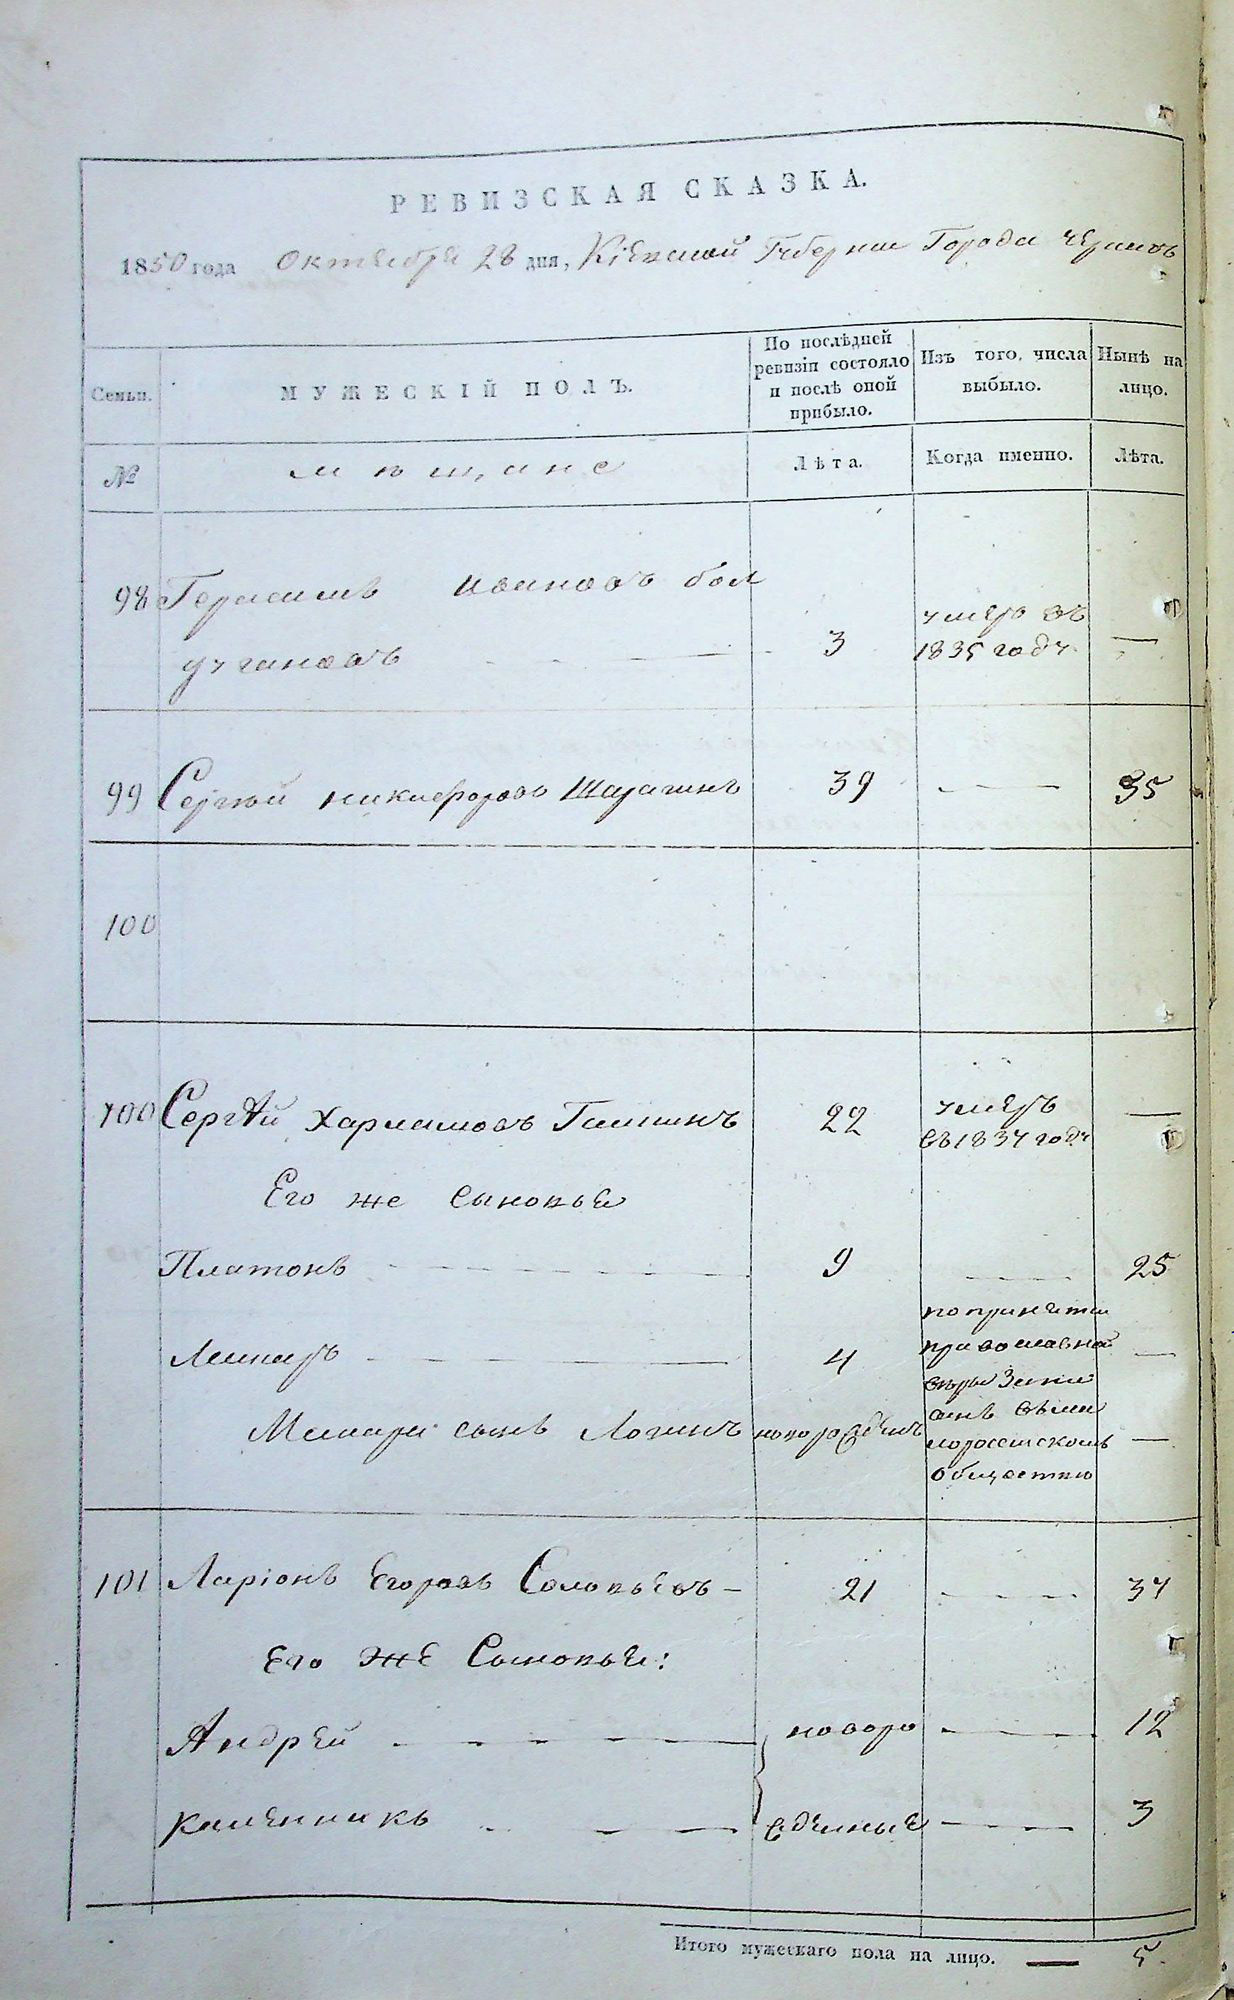 РЕВИЗСКАЯ СКАЗКА.
1850 года Октября 28 дня, Кіевской Губерніи Города
Семьи.
МУЖЕСКІЙ ПОЛЪ.
По послѣдней
ревизіи состояло
и послѣ оной
прибыло.
Изъ того числа
выбыло.
Нынѣ на
лицо.
№
мѣщане
Лѣта.
Когда именно.
Лѣта.
98 Герасимъ Ивановъ бол
3
умеръ въ
1835 году
—
99 Сергѣй никифоровъ Шарагинъ 39 — 35
100
100 Сергѣй Харламовъ 22
умеръ
въ 1837 году
—
Его же Сыновья
Платонъ 9 — 25
4 —
по принятіи
православной
вѣры
сынъ Логинъ новорожденъ —
обществѣ
101 Ларіонъ Егоровъ Соловьевъ — 21 — 37
Его же Сыновья:
Андрей — новоро — 12
— жденные — 3
Итого мужескаго пола на лицо. — 5.